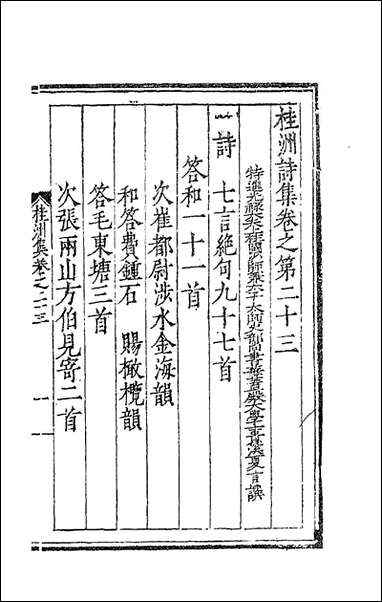 桂洲詩集卷之第二十三
特進光祿大夫上柱國少師兼太子太師吏部尚書華蓋殿大學士貴溪夏言譔
詩　七言絕句九十七首
答和一十一首
次崔都尉涉水金海韻
和答費鍾石　賜橄欖韻
答毛東塘三首
次張兩山方伯見寄二首
桂洲集卷之二十三　一